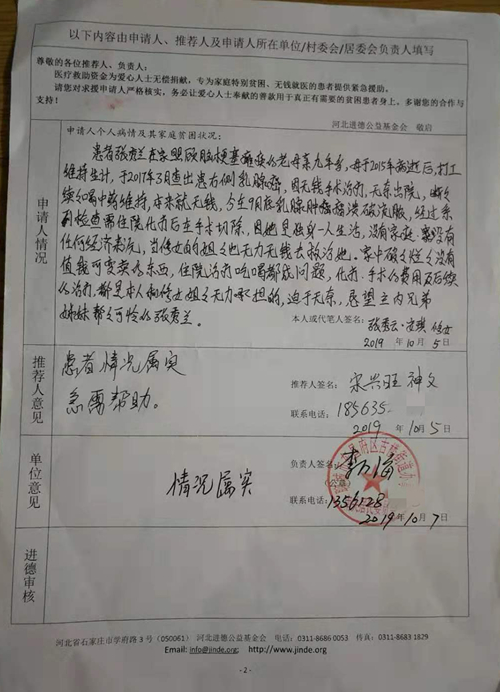 以下内容由申请人、推荐人及申请人所在单位/村委会/居委会负责人填写
尊敬的各位推荐人、负责人:
医疗救助资金为爱心人士无偿捐献,专为家庭特别贫困、无钱就医的患者提供紧急援助。
请您对求援申请人严格核实,务必让爱心人士奉献的善款用于真正有需要的贫困患者身上。多谢您的合作与
支持!
河北进德公益基金会 敬启
申请人情况
申请人个人病情及其家庭贫困状况:
患者张秀兰在家照顾脑梗塞瘫痪的老母亲九年多,母于2015年离逝后,打工
维持生计,于2017年3月查出患右侧乳腺癌,因无钱手术治疗,无奈出院,断
续喝中药维持,本来就无钱,今年9月底乳腺肿瘤溃破流脓,经过系
列检查需住院化疗后在手术切除,因她是独身一人生活,没有家庭,没有
任何经济来源,当修女的姐姐也无力无钱去救治她。家中破烂没有
值钱可变卖的东西,住院治疗吃喝都成问题,化疗、手术的费用及后续
的治疗,都是本人和修女姐姐无力承担的,迫于无奈,恳望主内兄弟
姊妹帮帮可怜的张秀兰。
本人或代笔人签名: 张秀云 修女
2019 年 10 月 5 日
推荐人意见
患者情况属实
急需帮助。
推荐人签名: 宋兴旺 神父
联系电话: 185635
2019 年 10 月 5 日
单位意见
情况属实
负责人签名:
(公章)
联系电话: 1356128
2019 年 10 月 7 日
进德审核
河北省石家庄市学府路 3 号 (050061) 河北进德公益基金会 电话: 0311-8686 0053 传真: 0311-8683 1829
Email: info@jinde.org; http://www.jinde.org
- 2 -